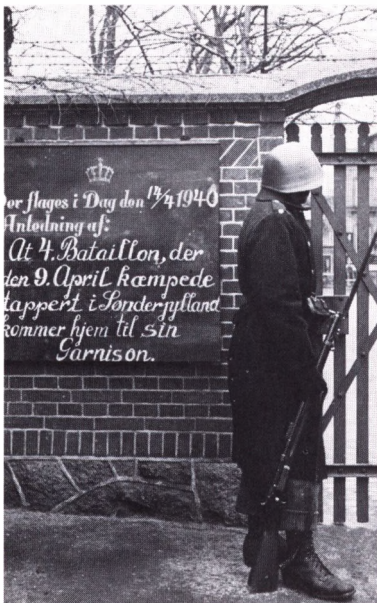 Der flages i Dag den 14/4 1940
Anledning af:
At 4. Bataillon, der
den 9. April kæmpede
tappert i Sønderjylland
kommer hjem til sin
Garnison.